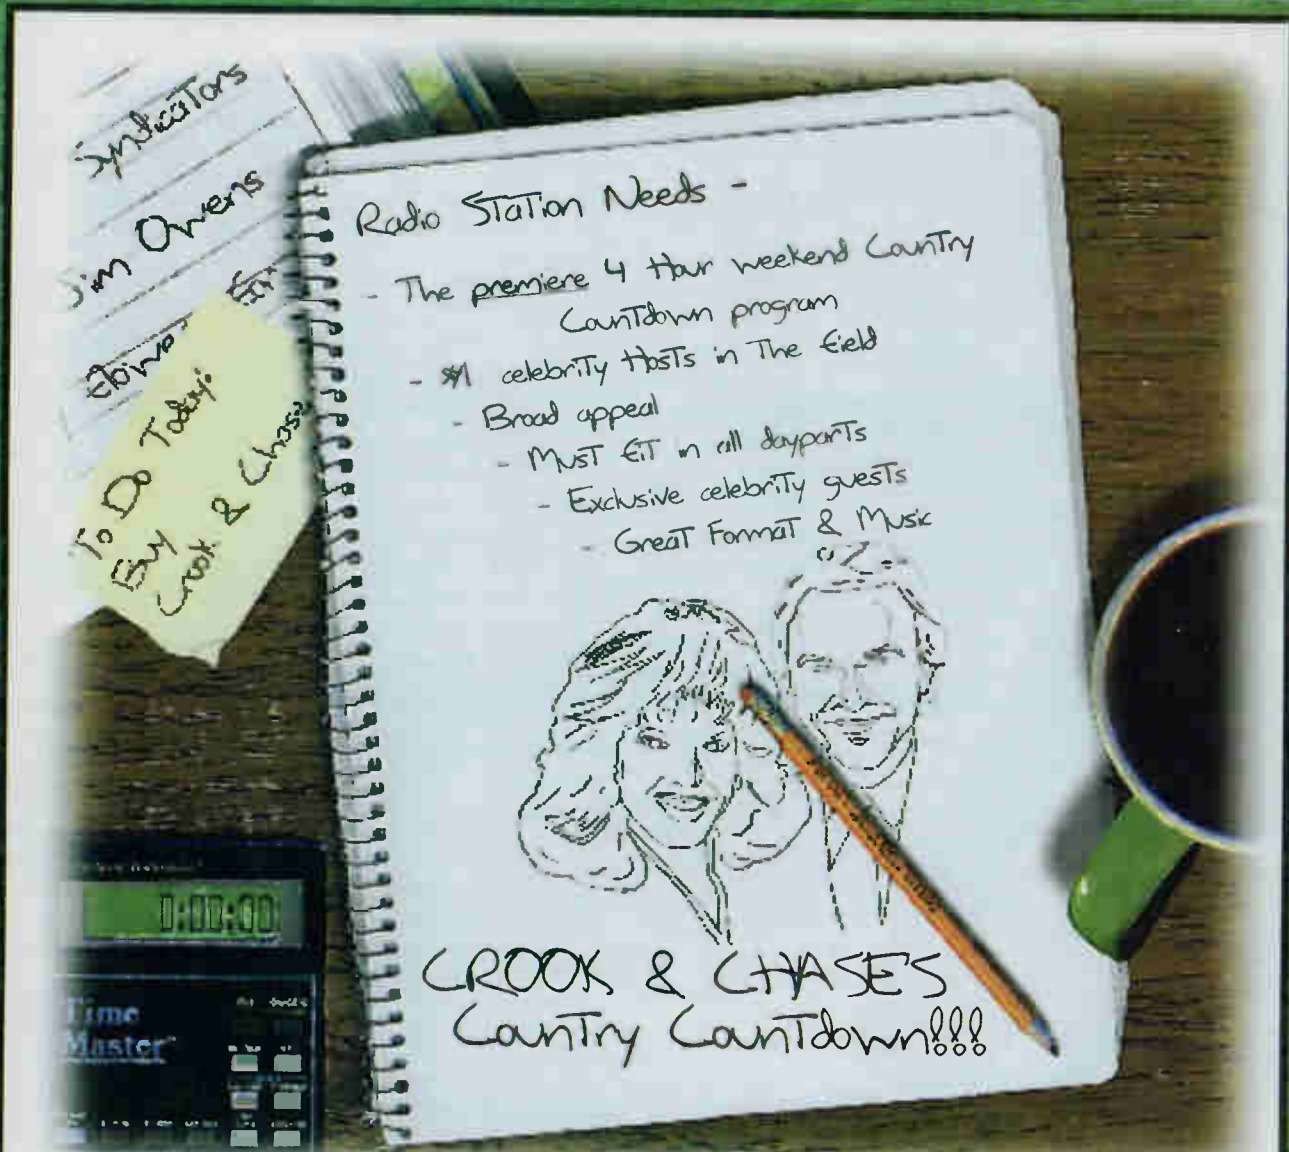 Syndicators
Jim Owens
To Do Today:
Buy
Crook & Chase
Radio Station Needs -
- The premiere 4 Hour weekend Country
Countdown program
- #1 celebrity Hosts in The field
- Broad appeal
- Must fit in all dayparts
- Exclusive celebrity guests
- Great Format & Music
CROOK & CHASE'S
Country Countdown!!!
0:00:00
Time
Master